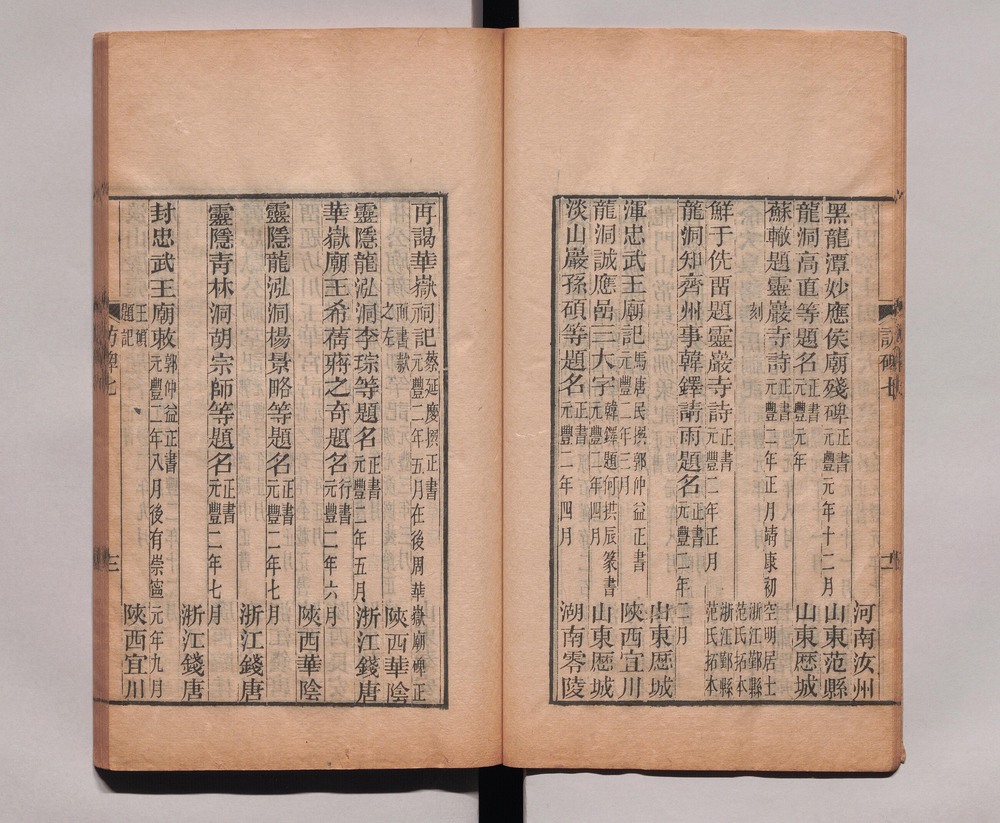 河南汝州
黑龍潭妙應侯廟殘碑正書元豐元年十二月 山東范縣
龍洞高直等題名正書元豐元年 山東歷城
蘇轍題靈巖寺詩正書元豐二年正月靖康初空明居士
刻 浙江鄞縣范氏拓本
鮮于侁留題靈巖寺詩正書元豐二年正月 浙江鄞縣范氏拓本
龍洞知齊州事韓鐸請雨題名正書元豐二年二月
山東歷城
渾忠武王廟記馬唐民撰郭仲益正書元豐二年三月 陝西宜川
龍洞誠應嵒三大字韓鐸題何拱辰篆書元豐二年四月 山東歷城
淡山巖孫碩等題名正書元豐二年四月 湖南零陵
訪碑七
十二
再謁華嶽祠記蔡延慶撰正書元豐二年五月在後周華嶽廟碑正
面書款之左 陝西華陰
靈隱龍泓洞李琮等題名正書元豐二年五月 浙江錢唐
華嶽廟王希蒨蔣之奇題名行書元豐二年六月
陝西華陰
靈隱龍泓洞楊景略等題名正書元豐二年七月
浙江錢唐
靈隱青林洞胡宗師等題名正書元豐二年七月
浙江錢唐
封忠武王廟敕郭仲益正書元豐二年八月後有崇寧元年九月
王碩題記 陝西宜川
訪碑七
十三